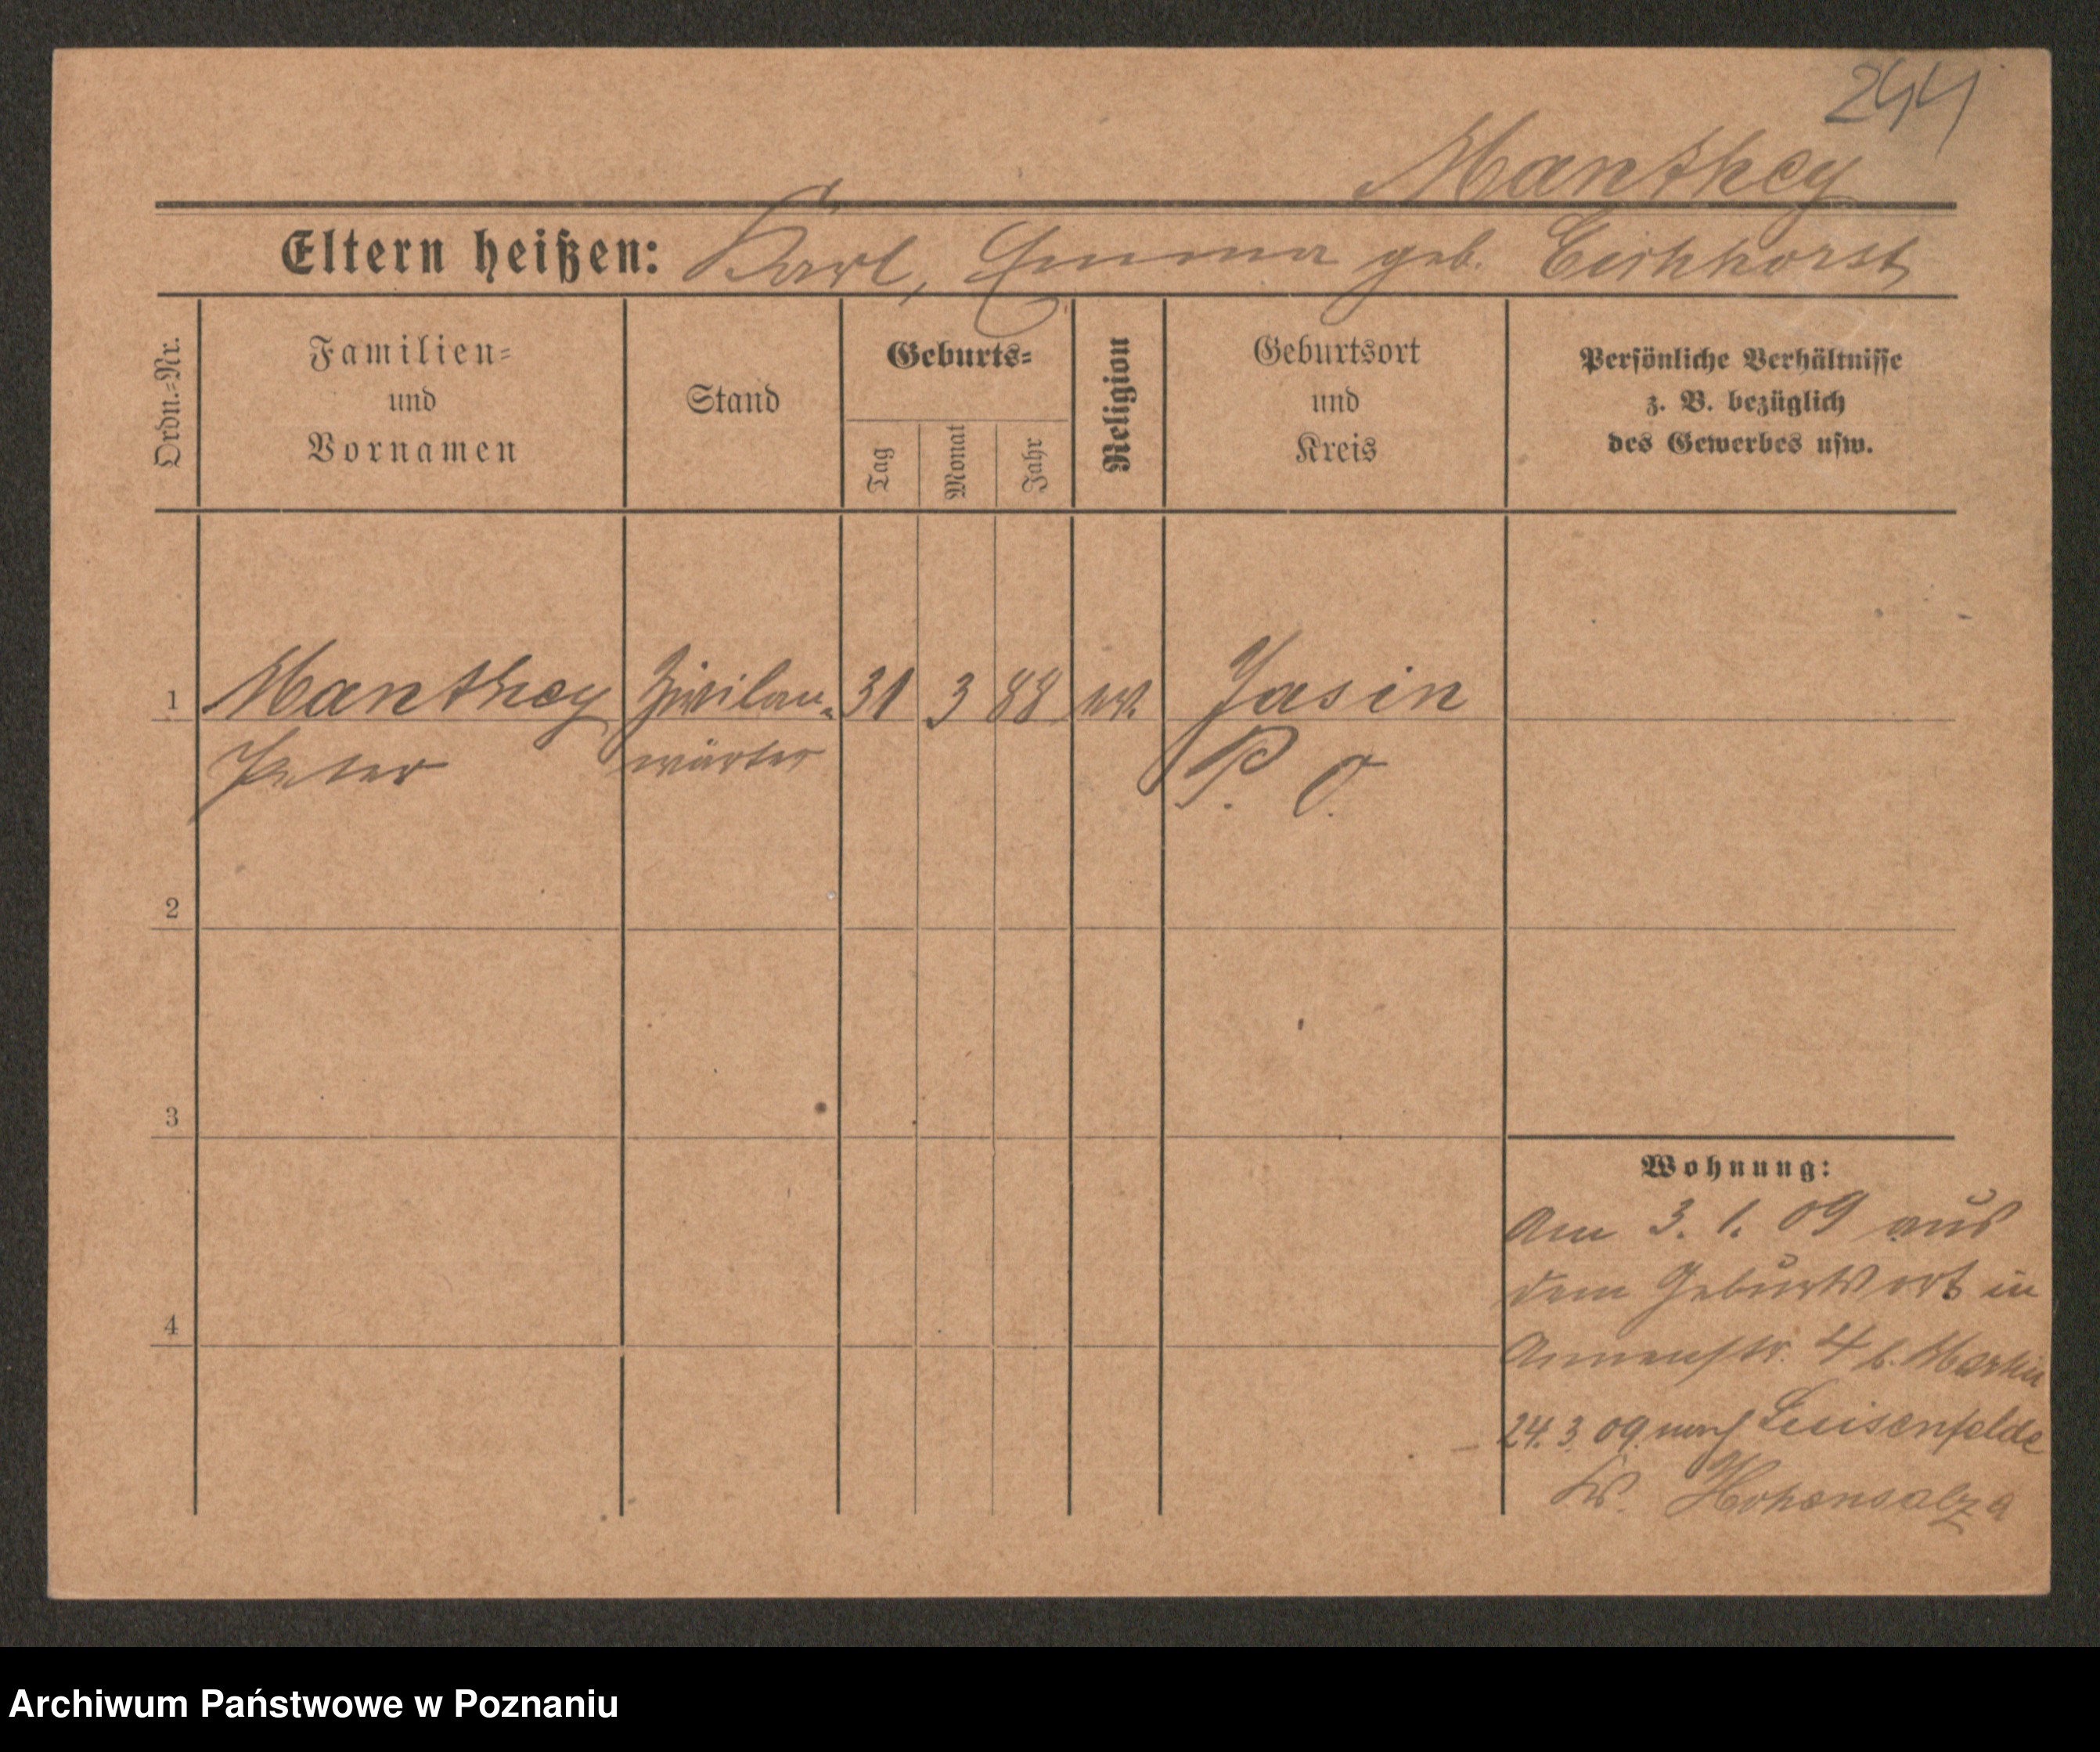 244
Manthey
Eltern heißen: Karl, Emma geb. Eichhorst
Ordn.-Nr.
Familien- und Vornamen
Stand
Geburts-
Tag
Monat
Jahr
Religion
Geburtsort und Kreis
Persönliche Verhältnisse
z. B. bezüglich
des Gewerbes usw.
1 Manthey Zivilan- 31 3 88 ev. Jasin
Peter wärter P. O.
2
3
4
Wohnung:
Am 3. 1. 09 aus
dem Geburtsort in
Annenstr. 4 b. Martin
24. 3. 09. nach Luisenfelde
Kr. Hohensalza
Archiwum Państwowe w Poznaniu